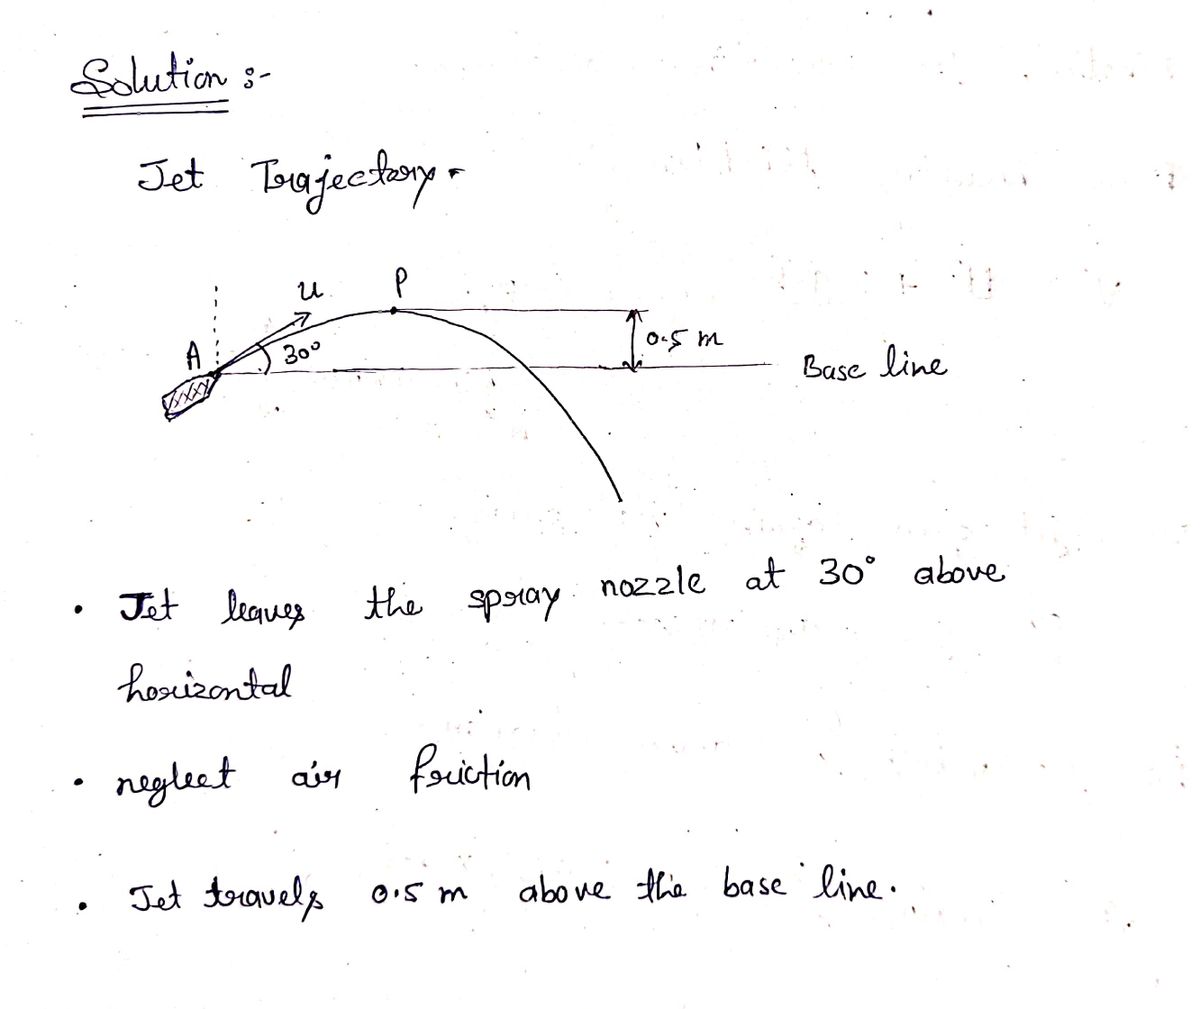 Solution :-
Jet Trajectory -
u P
A 30° 0.5 m
Base line
• Jet leaves the spray nozzle at 30° above
horizontal
• neglect air friction
• Jet travels 0.5 m above the base line.